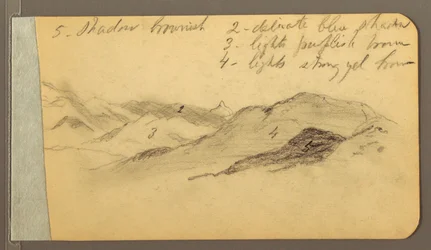 5 - Shadow brownish
2 - delicate blue shadow
3 - lights purplish brown
4 - lights strong yel brown
2
3
4
5